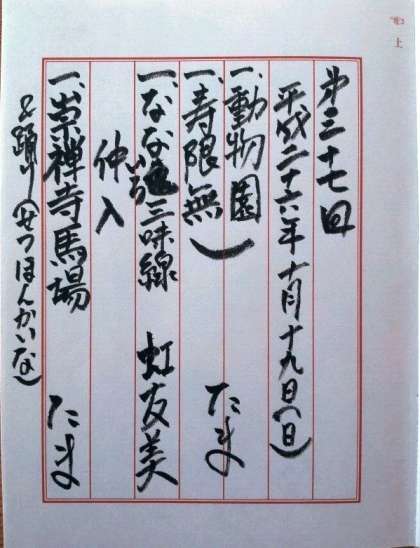 第三十七回
平成二十六年 十月十九日(日)
一、動物園
一、寿限無 たま
一、なな色三味線 虹友美
仲入
一、崇禅寺馬場 たま
&踊り(せつほんかいな)
上